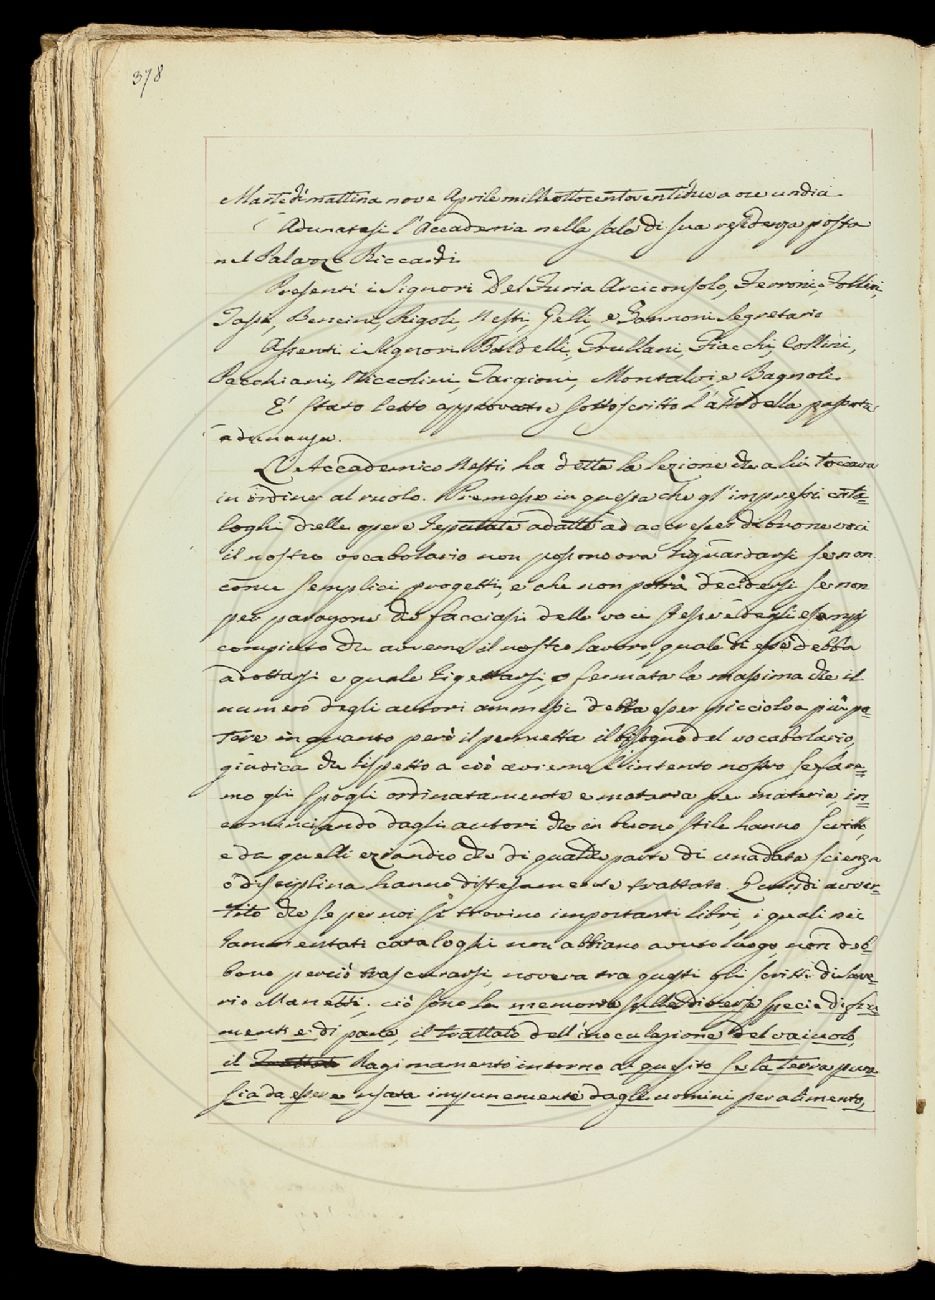 378
Martedì mattina nove Aprile milleottocentoventidue a ore undici.
Adunatasi l'Accademia nella sala di sua residenza posta
nel Palazzo Riccardi.
Presenti i Signori Del Furia Arciconsolo, Ferroni, Follini,
Bencini, Rigoli, Nesti, Zannoni Segretario
Assenti i Signori Baldelli, Grullani, Fiacchi, Collini,
Pacchiani, Niccolini, Targioni, Montalvi, e Bagnoli.
È stato letto approvato e sottoscritto l'atto della passata
adunanza.
L'Accademico Nesti ha detta la lezione che a lui toccava
in ordine al ruolo. Premesso in questa che gl'impressi cata=
loghi delle opere reputate adatte ad accrescer di buone voci
il nostro vocabolario non possono ora riguardarsi se non
come semplici progetti, e che non potrà decidersi se non
per paragone che facciasi delle voci stesse e degli esempj
compiuto che avremo il nostro lavoro, quale di esse debba
adottarsi e quale rigettarsi, e fermata la massima che il
numero degli autori ammessi debba esser picciolo a più po=
tere in quanto però il permetta il bisogno del vocabolario,
giudica che rispetto a ciò avremo l'intento nostro se fare=
mo gli spogli ordinatamente e materia per materia, in=
cominciando dagli autori che in buono stile hanno scritto,
e da quelli eziandio che di qualche parte di una data scienza
o disciplina hanno distesamente trattato. Quindi avver=
tito che se per noi si trovino importanti libri, i quali nei
rammentati cataloghi non abbiano avuto luogo, non deb=
bono perciò trascurarsi, novera tra questi gli scritti di Save=
rio Manetti; ciò sono la memoria sulle diverse specie di fru=
menti e di pane, il trattato dell'inoculazione del vaiuolo,
il Trattato Ragionamento intorno al quesito se la terra pura
sia da essere usata impunemente dagli uomini per alimento,